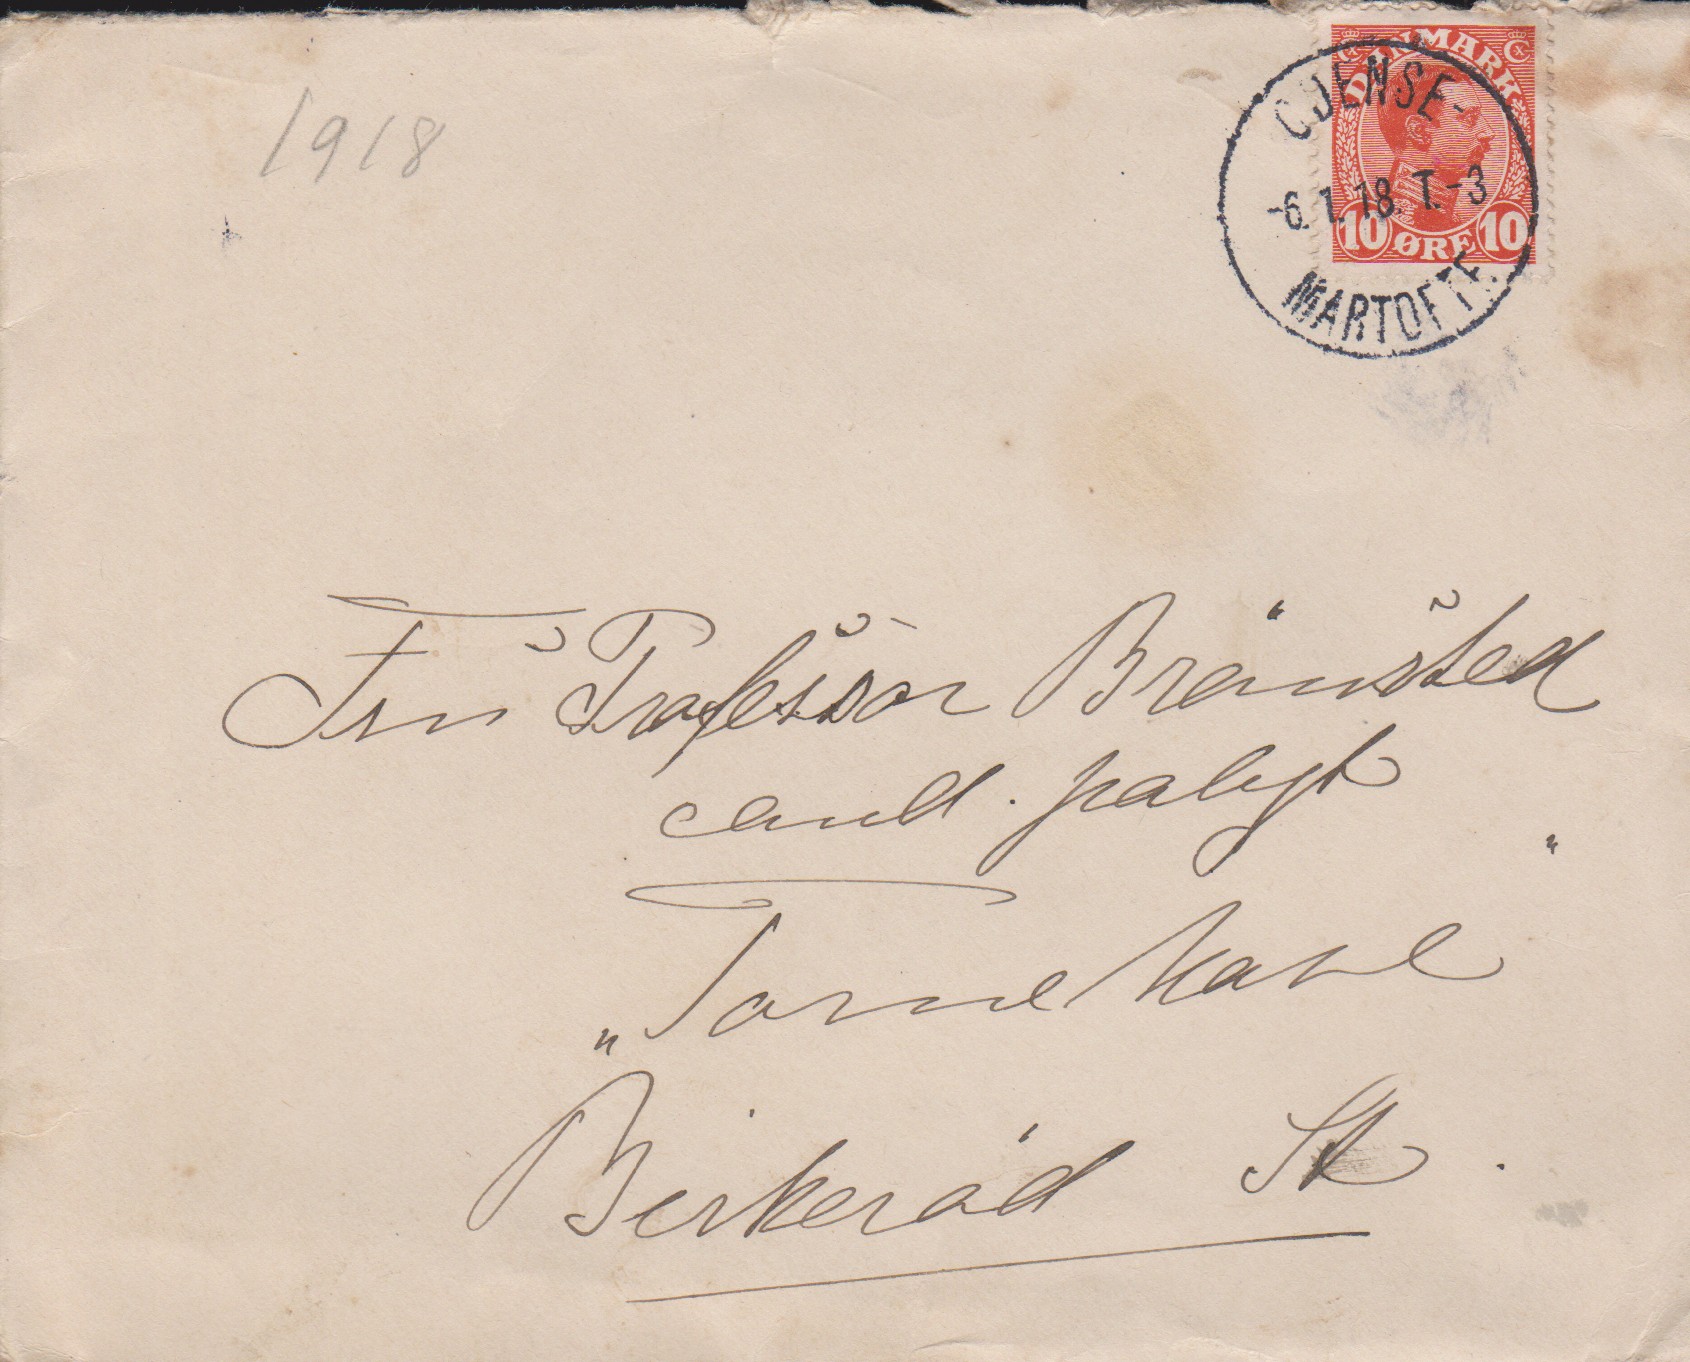 1918
DANMARK
10 ØRE 10
ODENSE-
-6.1.18. T.-3
MARTOFTE
Fru Professor Brønsted
cand. polyt
„Tornekrat"
Birkerød St.